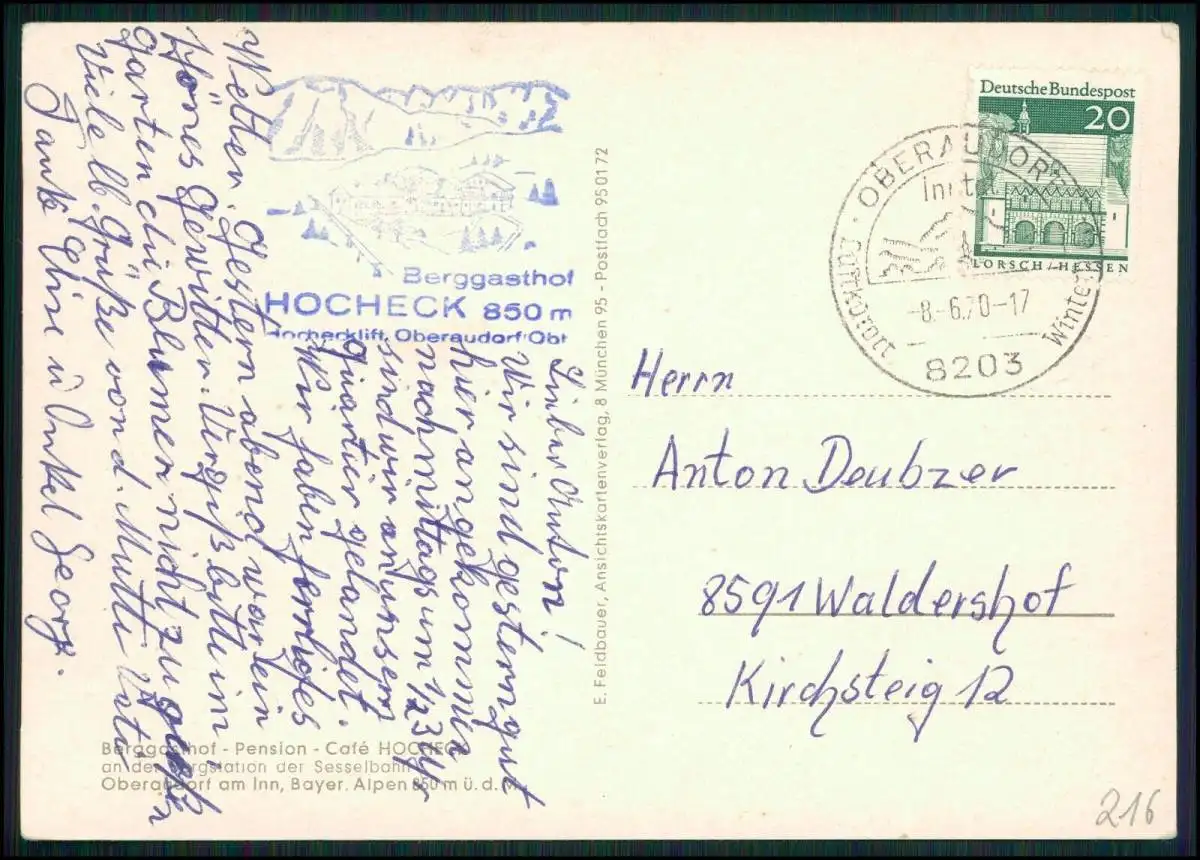 Lieber Anton!
Wir sind gestern gut
hier angekommen
nachmittags um 1/2 3 Uhr
sind wir an unserm
Quartier gelandet.
Wir haben herrliches
Wetter. Gestern abend war ein
schönes Gewitter. Vergiß bitte im
Garten die Blumen nicht zu gießen
Viele lb. Grüße von d. Mutti Vati
Tante Elise u Onkel Georg.
Berggasthof
HOCHECK 850 m
Hochecklift, Oberaudorf/Obb
Berggasthof - Pension - Café HOCHECK
an der Bergstation der Sesselbahn
Oberaudorf am Inn, Bayer. Alpen 850 m ü. d. M.
E. Feldbauer, Ansichtskartenverlag, 8 München 95 - Postfach 950172
Deutsche Bundespost
20
LORSCH/HESSEN
OBERAUDORF
Inntal
Luftkurort
Winter
-8.-6.70-17
8203
Herrn
Anton Deubzer
8591 Waldershof
Kirchsteig 12
216